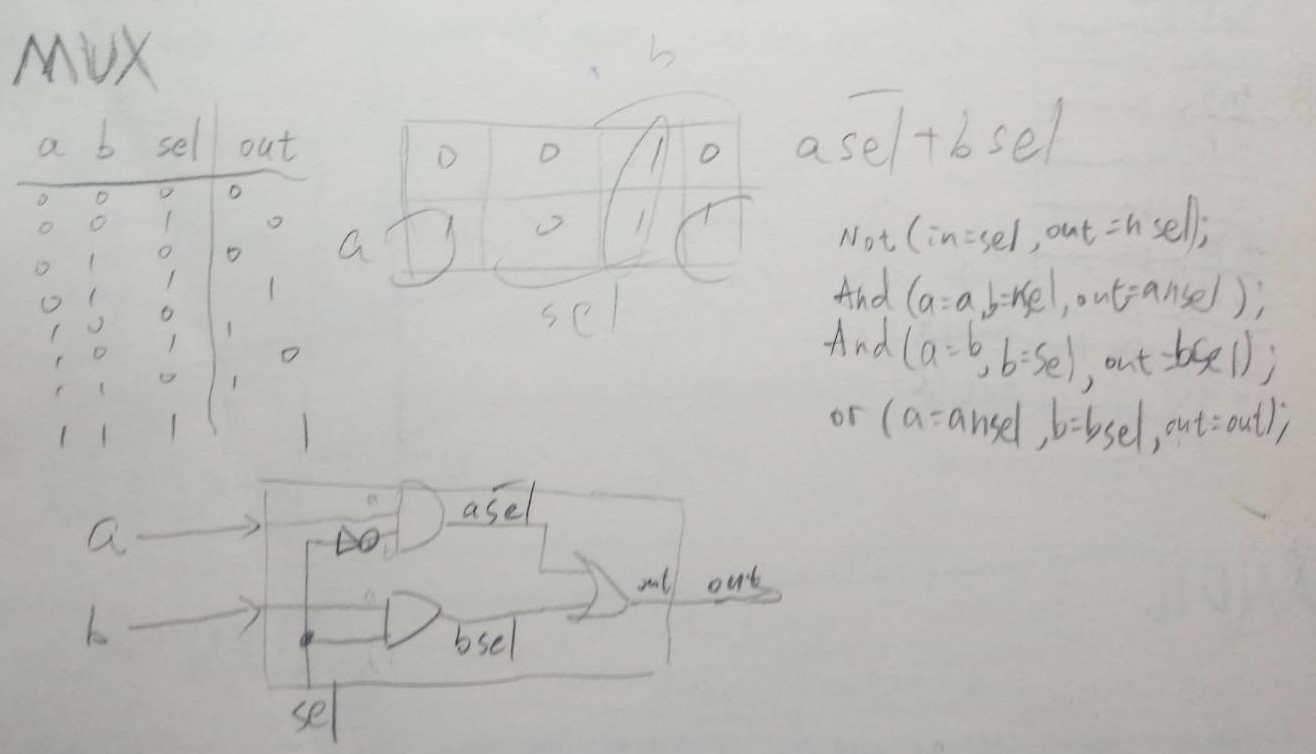 MUX
a b sel out
0 0 0 0
0 0 1 0
0 1 0 0
0 1 1 1
1 0 0 1
1 0 1 0
1 1 0 1
1 1 1 1
b
0 0 1 0
a 1 0 1 1
sel
a s̅e̅l̅ + b sel
Not (in=sel, out=nsel);
And (a=a, b=nsel, out=ansel);
And (a=b, b=sel, out=bsel);
or (a=ansel, b=bsel, out=out);
a
a s̅e̅l̅
a
b
out out
b
a
bsel
sel